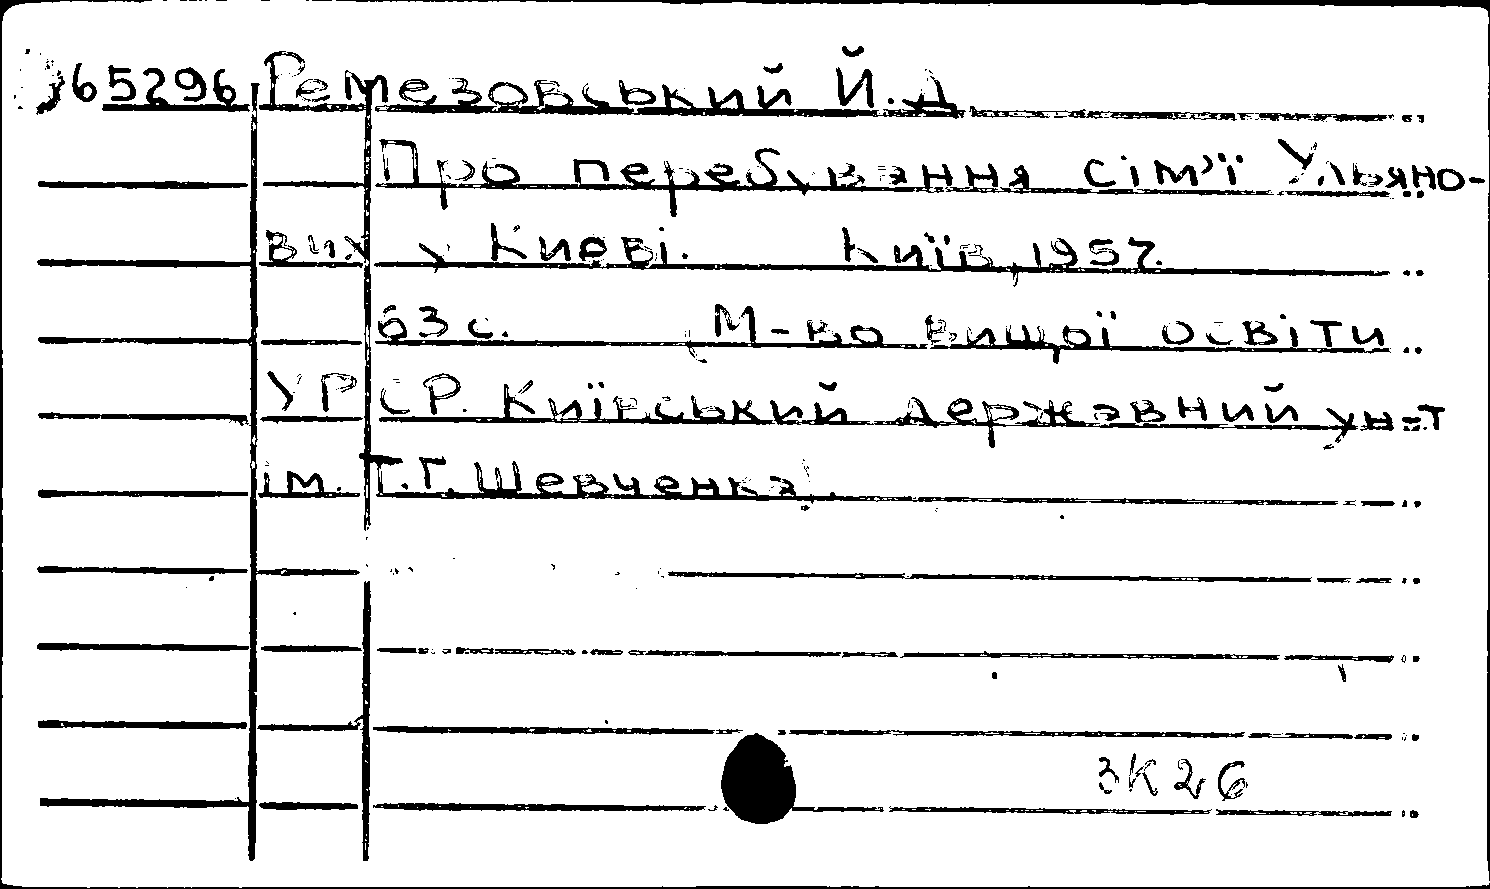 65296 Ремезовський Й.Д.
Про перебування сім'ї Ульяно-
вих у Києві. Київ, 1957.
63 с. (М-во вищої освіти
УРСР. Київський державний ун-т
ім. Т.Г. Шевченка).
ЗК26